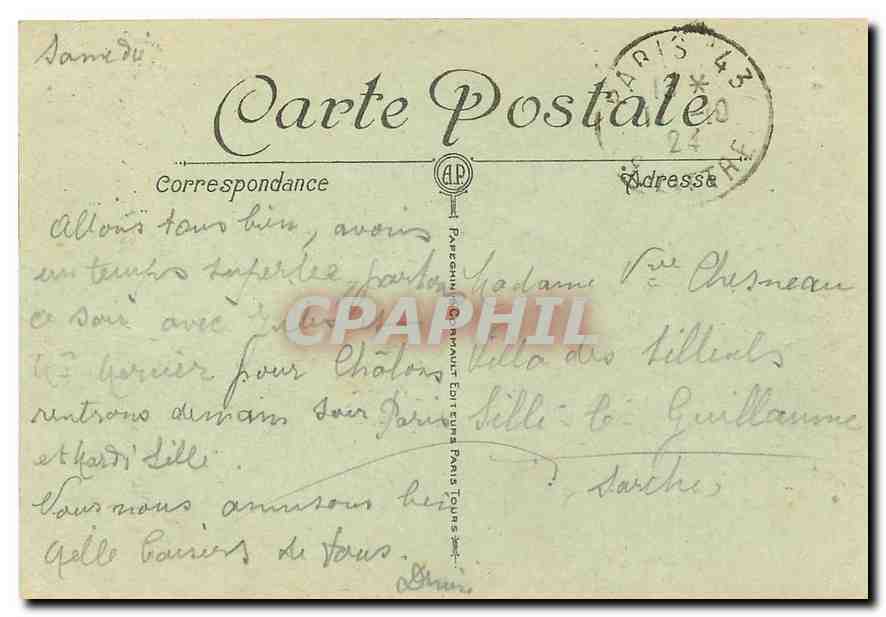 Samedi
Carte Postale
PARIS 43
13 *
10
24
Correspondance
A.P.
Adresse
Allons tous bien, avons
un temps superbe, parton
ce soir avec Jules et
Mercier pour Châlons
rentrons demain soir Paris
et Mardi Sillé.
Nous nous amusons bien
Mille baisers de tous.
Denise
Madame Vve Chesneau
Villa des Tilleuls
Sillé-le-Guillaume
Sarthe
PAPEGHIN & CORMAULT EDITEURS PARIS TOURS
CPAPHIL